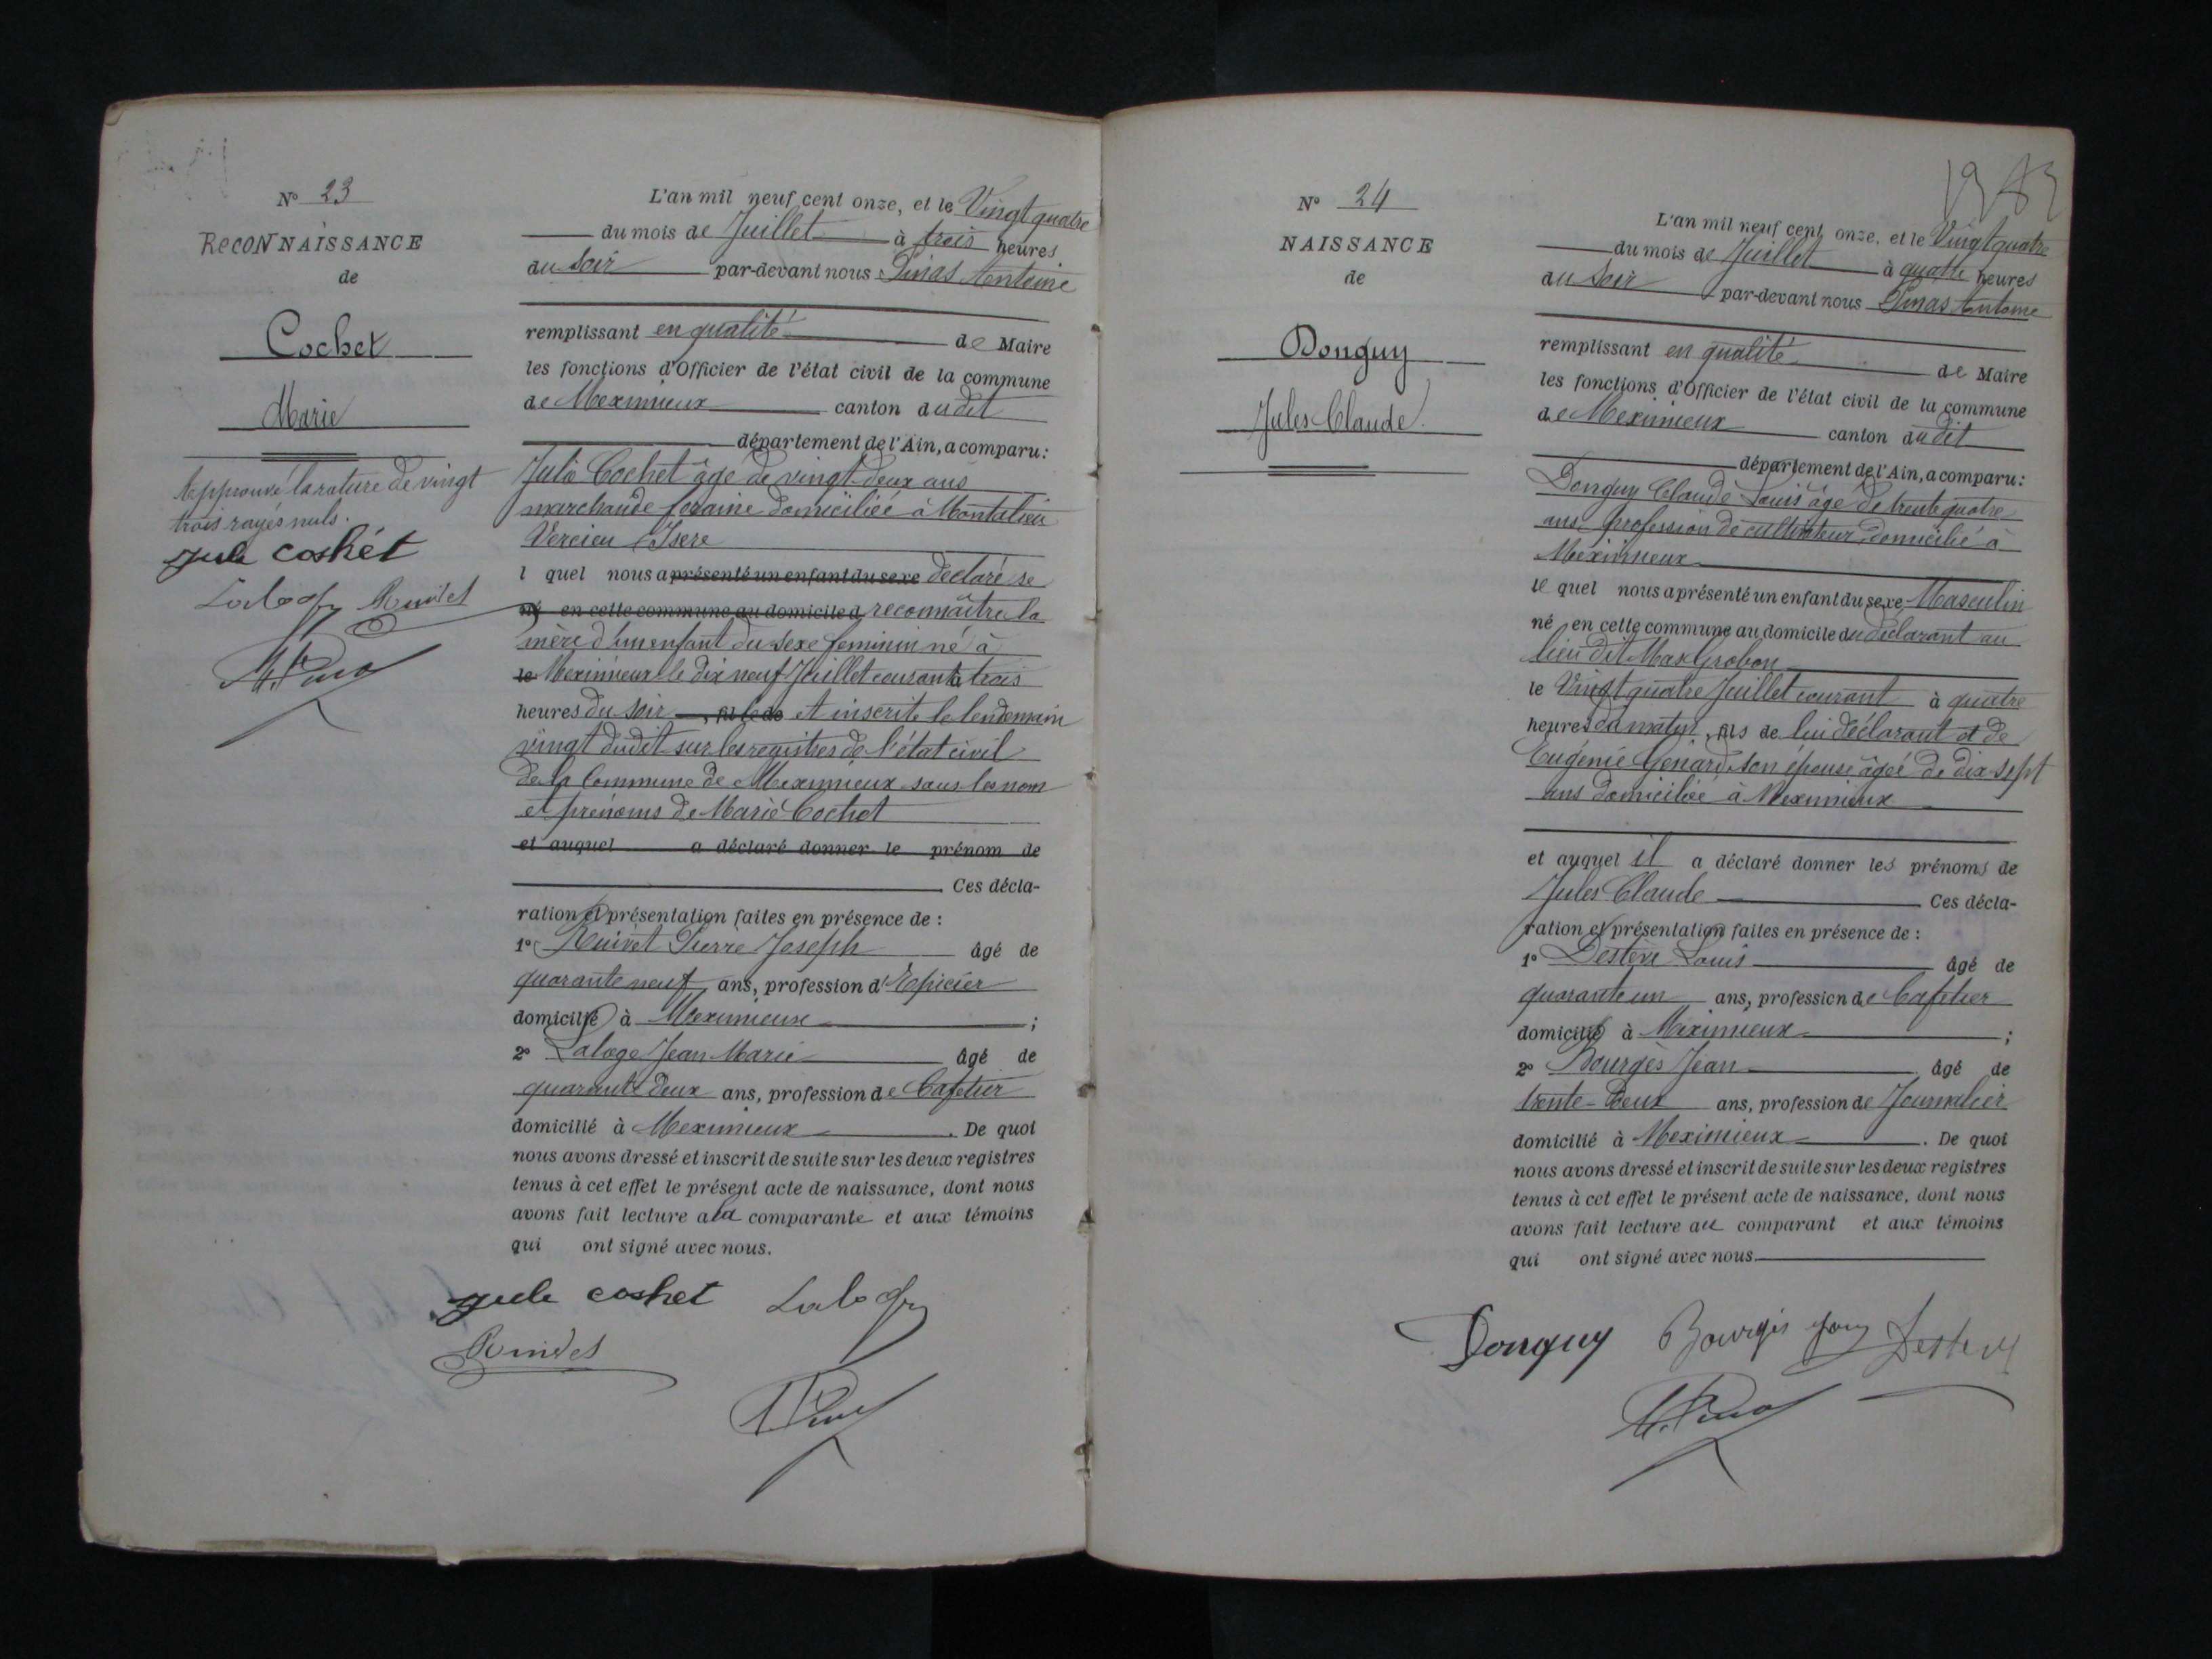 N° 23
RECONNAISSANCE
de
Cochet
Marie
Approuvé la rature de vingt
trois rayés nuls.
jule coshét
Laloge Ruivet
L'an mil neuf cent onze, et le Vingt quatre
du mois de Juillet à trois heures
du soir par-devant nous Pinas Antoine
remplissant en qualité de Maire
les fonctions d'Officier de l'état civil de la commune
de Meximieux canton dudit
département de l'Ain, a comparu:
Julie Cochet âgé de vingt-deux ans
marchande foraine domiciliée à Montalieu
Vercieu Isere
l quel nous a présenté un enfant du sexe déclaré se
né en cette commune au domicile d reconnaître la
mère d'un enfant du sexe feminin né à
le Meximieux le dix neuf Juillet courant à trois
heures du soir , fil de et inscrite le lendemain
vingt dudit sur les registres de l'état civil
de la Commune de Meximieux sous les nom
et prénoms de Marie Cochet
et auquel a déclaré donner le prénom de
Ces décla-
ration et présentation faites en présence de :
1° Ruivet Pierre Joseph âgé de
quarante neuf ans, profession d'Epicier
domicilié à Meximieux ;
2° Laloge Jean Marie âgé de
quarante deux ans, profession de Cafetier
domicilié à Meximieux . De quoi
nous avons dressé et inscrit de suite sur les deux registres
tenus à cet effet le présent acte de naissance, dont nous
avons fait lecture a la comparante et aux témoins
qui ont signé avec nous.
jule coshet Laloge
Ruivet
N° 24
NAISSANCE
de
Donguy
Jules Claude
L'an mil neuf cent onze, et le Vingt quatre
du mois de Juillet à quatre heures
du soir par-devant nous Pinas Antoine
remplissant en qualité de Maire
les fonctions d'Officier de l'état civil de la commune
de Meximieux canton dudit
département de l'Ain, a comparu:
Donguy Claude Louis âgé de trente quatre
ans, profession de cultivateur domicilié à
Meximieux
le quel nous a présenté un enfant du sexe Masculin
né en cette commune au domicile du déclarant au
lieu dit Mas Grobon
le Vingt quatre Juillet courant à quatre
heures du matin, fils de lui déclarant et de
Eugénie Genard son épouse âgée de dix sept
ans domiciliée à Meximieux
et auquel il a déclaré donner les prénoms de
Jules Claude Ces décla-
ration et présentation faites en présence de :
1° Louis âgé de
quarante un ans, profession de Cafetier
domicilié à Meximieux ;
2° Bourgès Jean âgé de
trente-deux ans, profession de Journalier
domicilié à Meximieux . De quoi
nous avons dressé et inscrit de suite sur les deux registres
tenus à cet effet le présent acte de naissance, dont nous
avons fait lecture au comparant et aux témoins
qui ont signé avec nous.
Donguy Bourgès